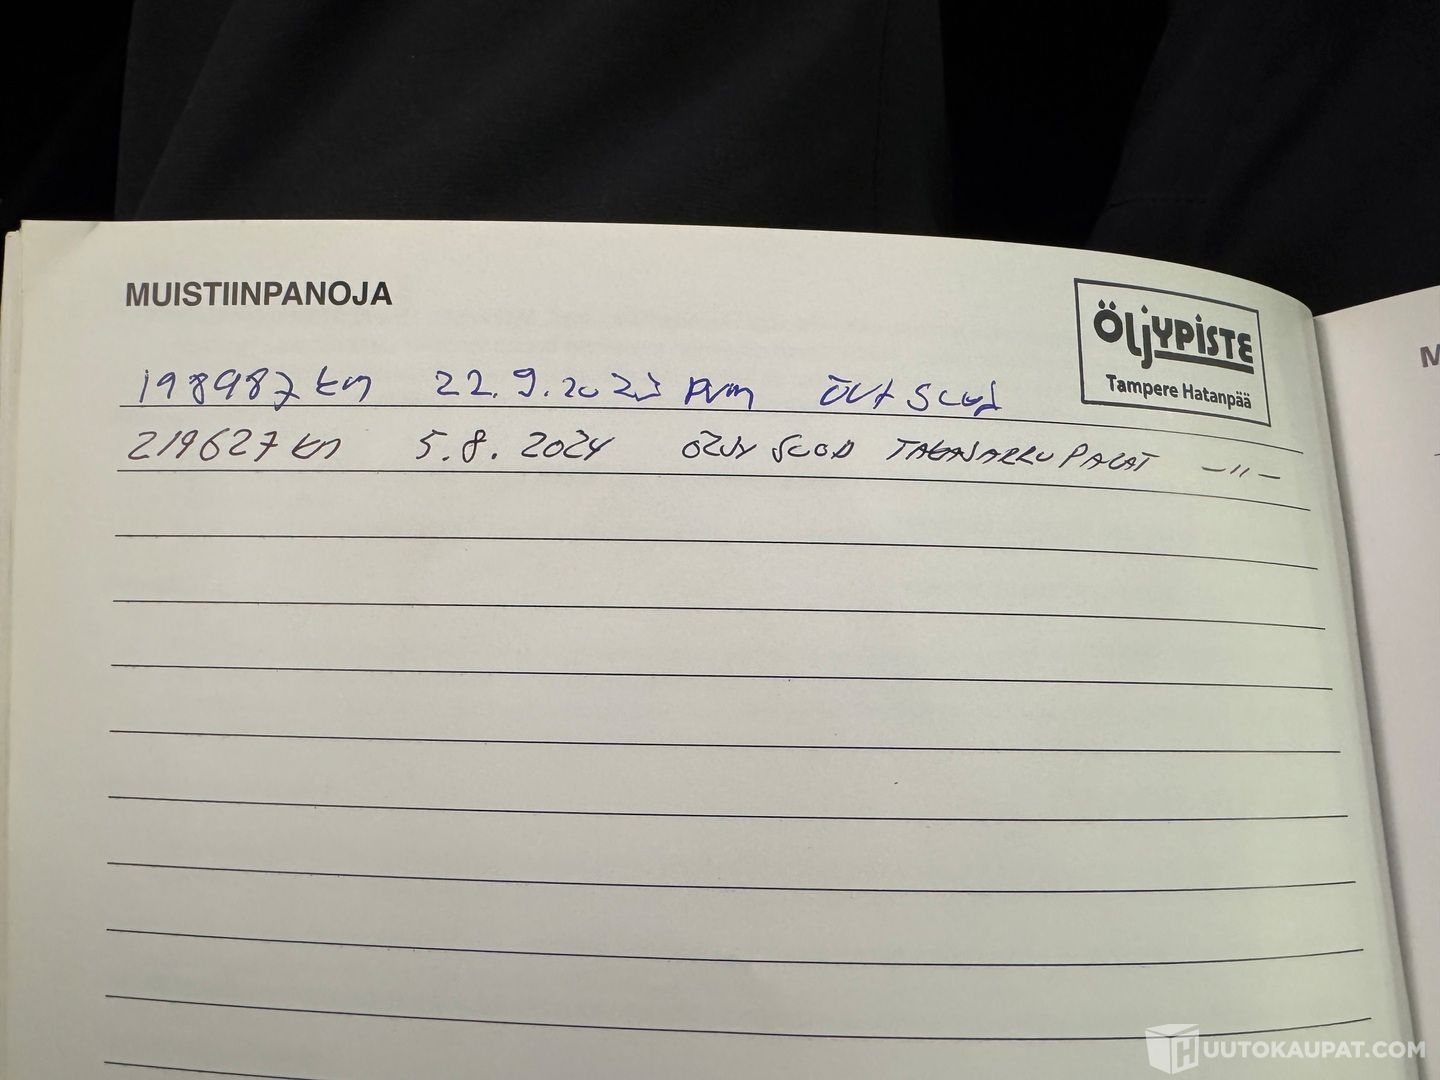 MUISTIINPANOJA
ÖLJYPISTE
Tampere Hatanpää
198987 km 22.9.2023 pvm ÖLJ SUOD
219627 km 5.8.2024 ÖLJY SUOD TAKAJARRUPALAT —"—
M
HUUTOKAUPAT.COM